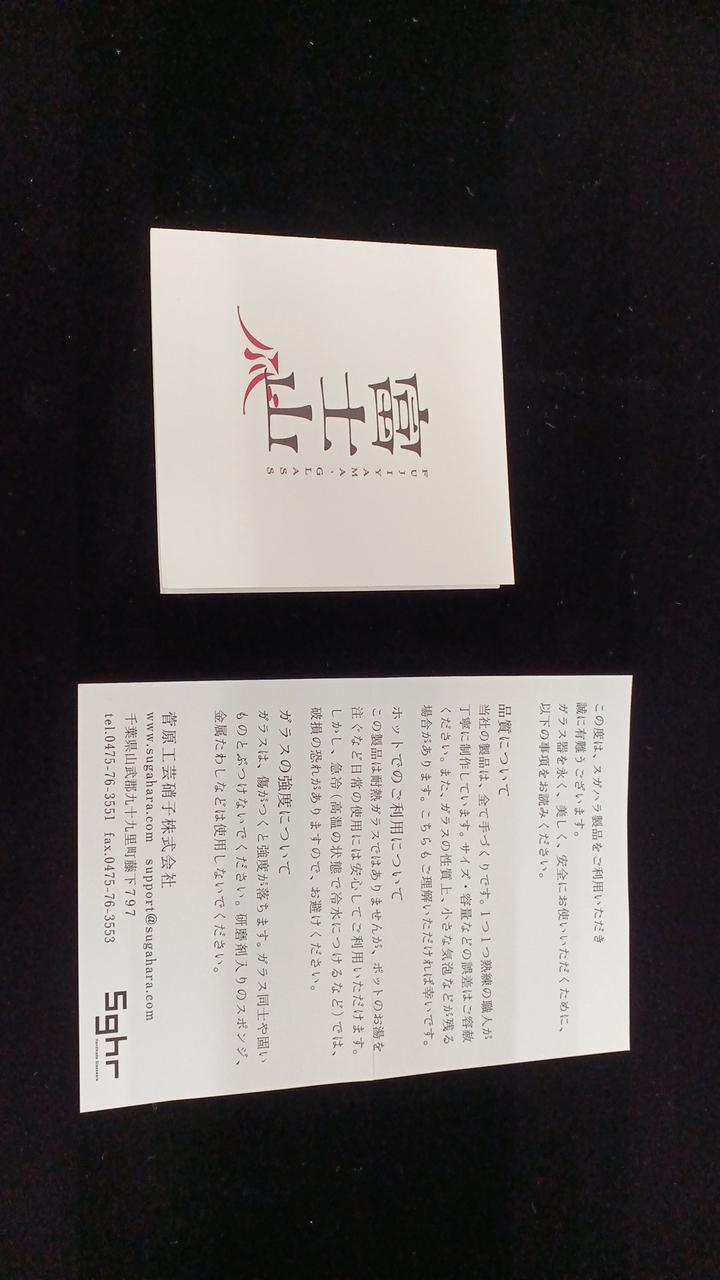 富士山
FUJIYAMA・GLASS
この度は、スガハラ製品をご利用いただき
誠に有難うございます。
ガラス器を永く、美しく、安全にお使いいただくために、
以下の事項をお読みください。
品質について
当社の製品は、全て手づくりです。1つ1つ熟練の職人が
丁寧に制作しています。サイズ・容量などの誤差はご容赦
ください。また、ガラスの性質上、小さな気泡などが残る
場合があります。こちらもご理解いただければ幸いです。
ホットでのご利用について
この製品は耐熱ガラスではありませんが、ポットのお湯を
注ぐなど日常の使用には安心してご利用いただけます。
しかし、急冷(高温の状態で冷水につけるなど)では、
破損の恐れがありますので、お避けください。
ガラスの強度について
ガラスは、傷がつくと強度が落ちます。ガラス同士や固い
ものとぶつけないでください。研磨剤入りのスポンジ、
金属たわしなどは使用しないでください。
菅原工芸硝子株式会社
www.sugahara.com support@sugahara.com
千葉県山武郡九十九里町藤下797
tel.0475-76-3551 fax.0475-76-3553
Sghr